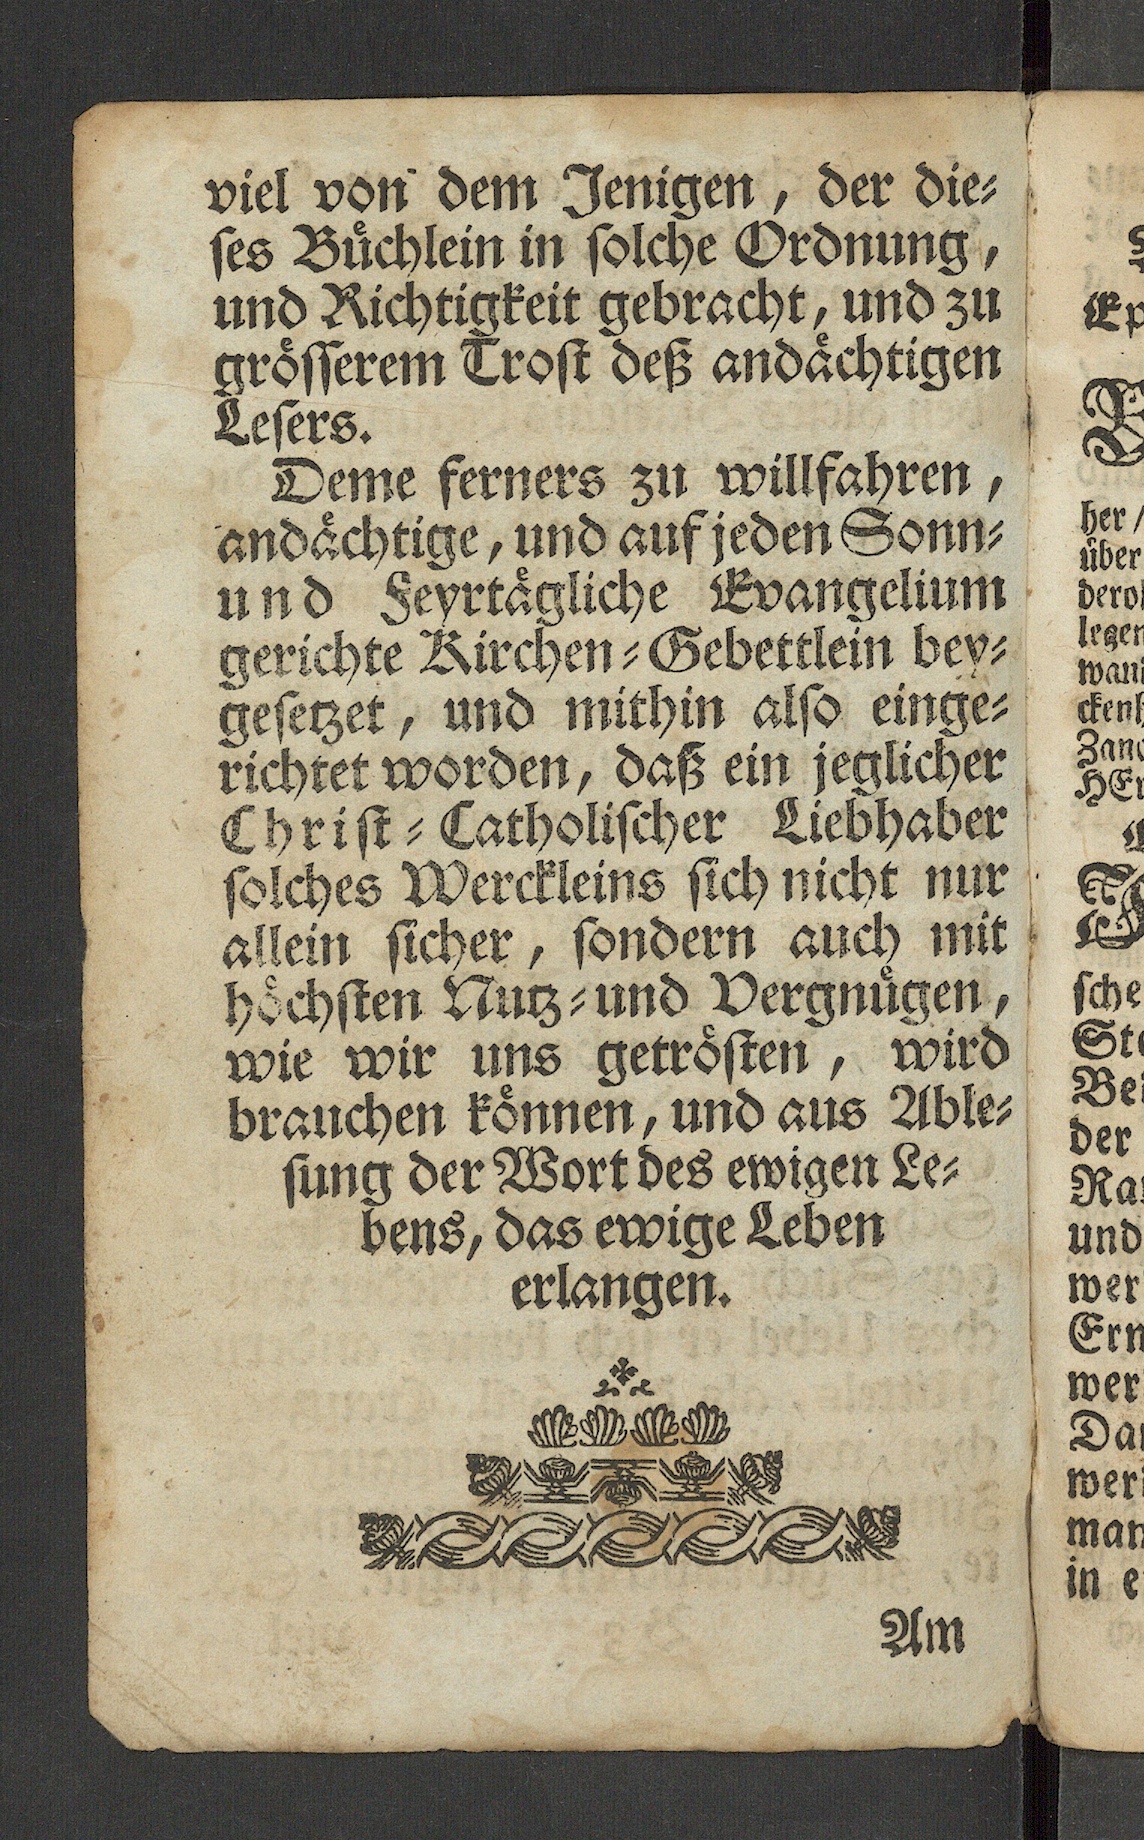 viel von dem Jenigen, der die⸗
ses Büchlein in solche Ordnung,
und Richtigkeit gebracht, und zu
grösserem Trost deß andächtigen
Lesers.
Deme ferners zu willfahren,
andächtige, und auf jeden Sonn⸗
und Feyrtägliche Evangelium
gerichte Kirchen⸗Gebettlein bey⸗
gesetzet, und mithin also einge⸗
richtet worden, daß ein jeglicher
Christ⸗Catholischer Liebhaber
solches Werckleins sich nicht nur
allein sicher, sondern auch mit
höchsten Nutz⸗und Vergnügen,
wie wir uns getrösten, wird
brauchen können, und aus Able⸗
sung der Wort des ewigen Le⸗
bens, das ewige Leben
erlangen.
Am
Ep
her/
über
legen
sche
der
und
wer
Ern
wer
in e